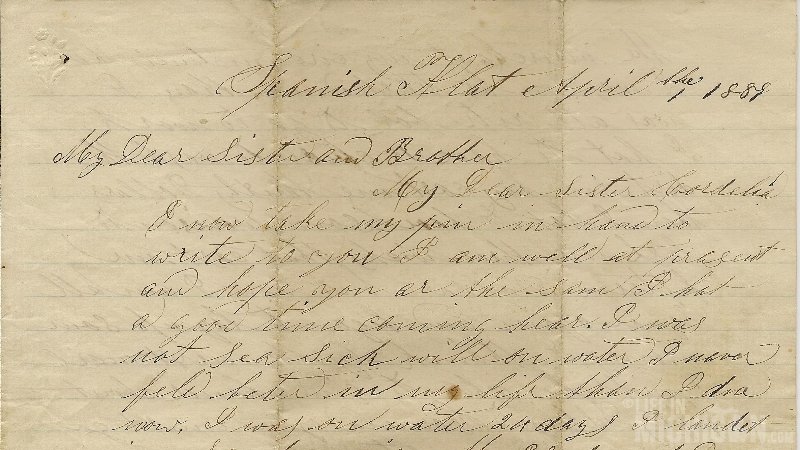 Spanish Flat April the 1, 1889
My Dear Sister and Brother
My Dear Sister Cordelia
I now take my pin in hand to
write to you I am well at present
and hope you ar the sam I had
a good time coming hear. I was
not Sea Sick will on water I never
fell beter in my life than I dea
now. I was on water 24 days I landet-